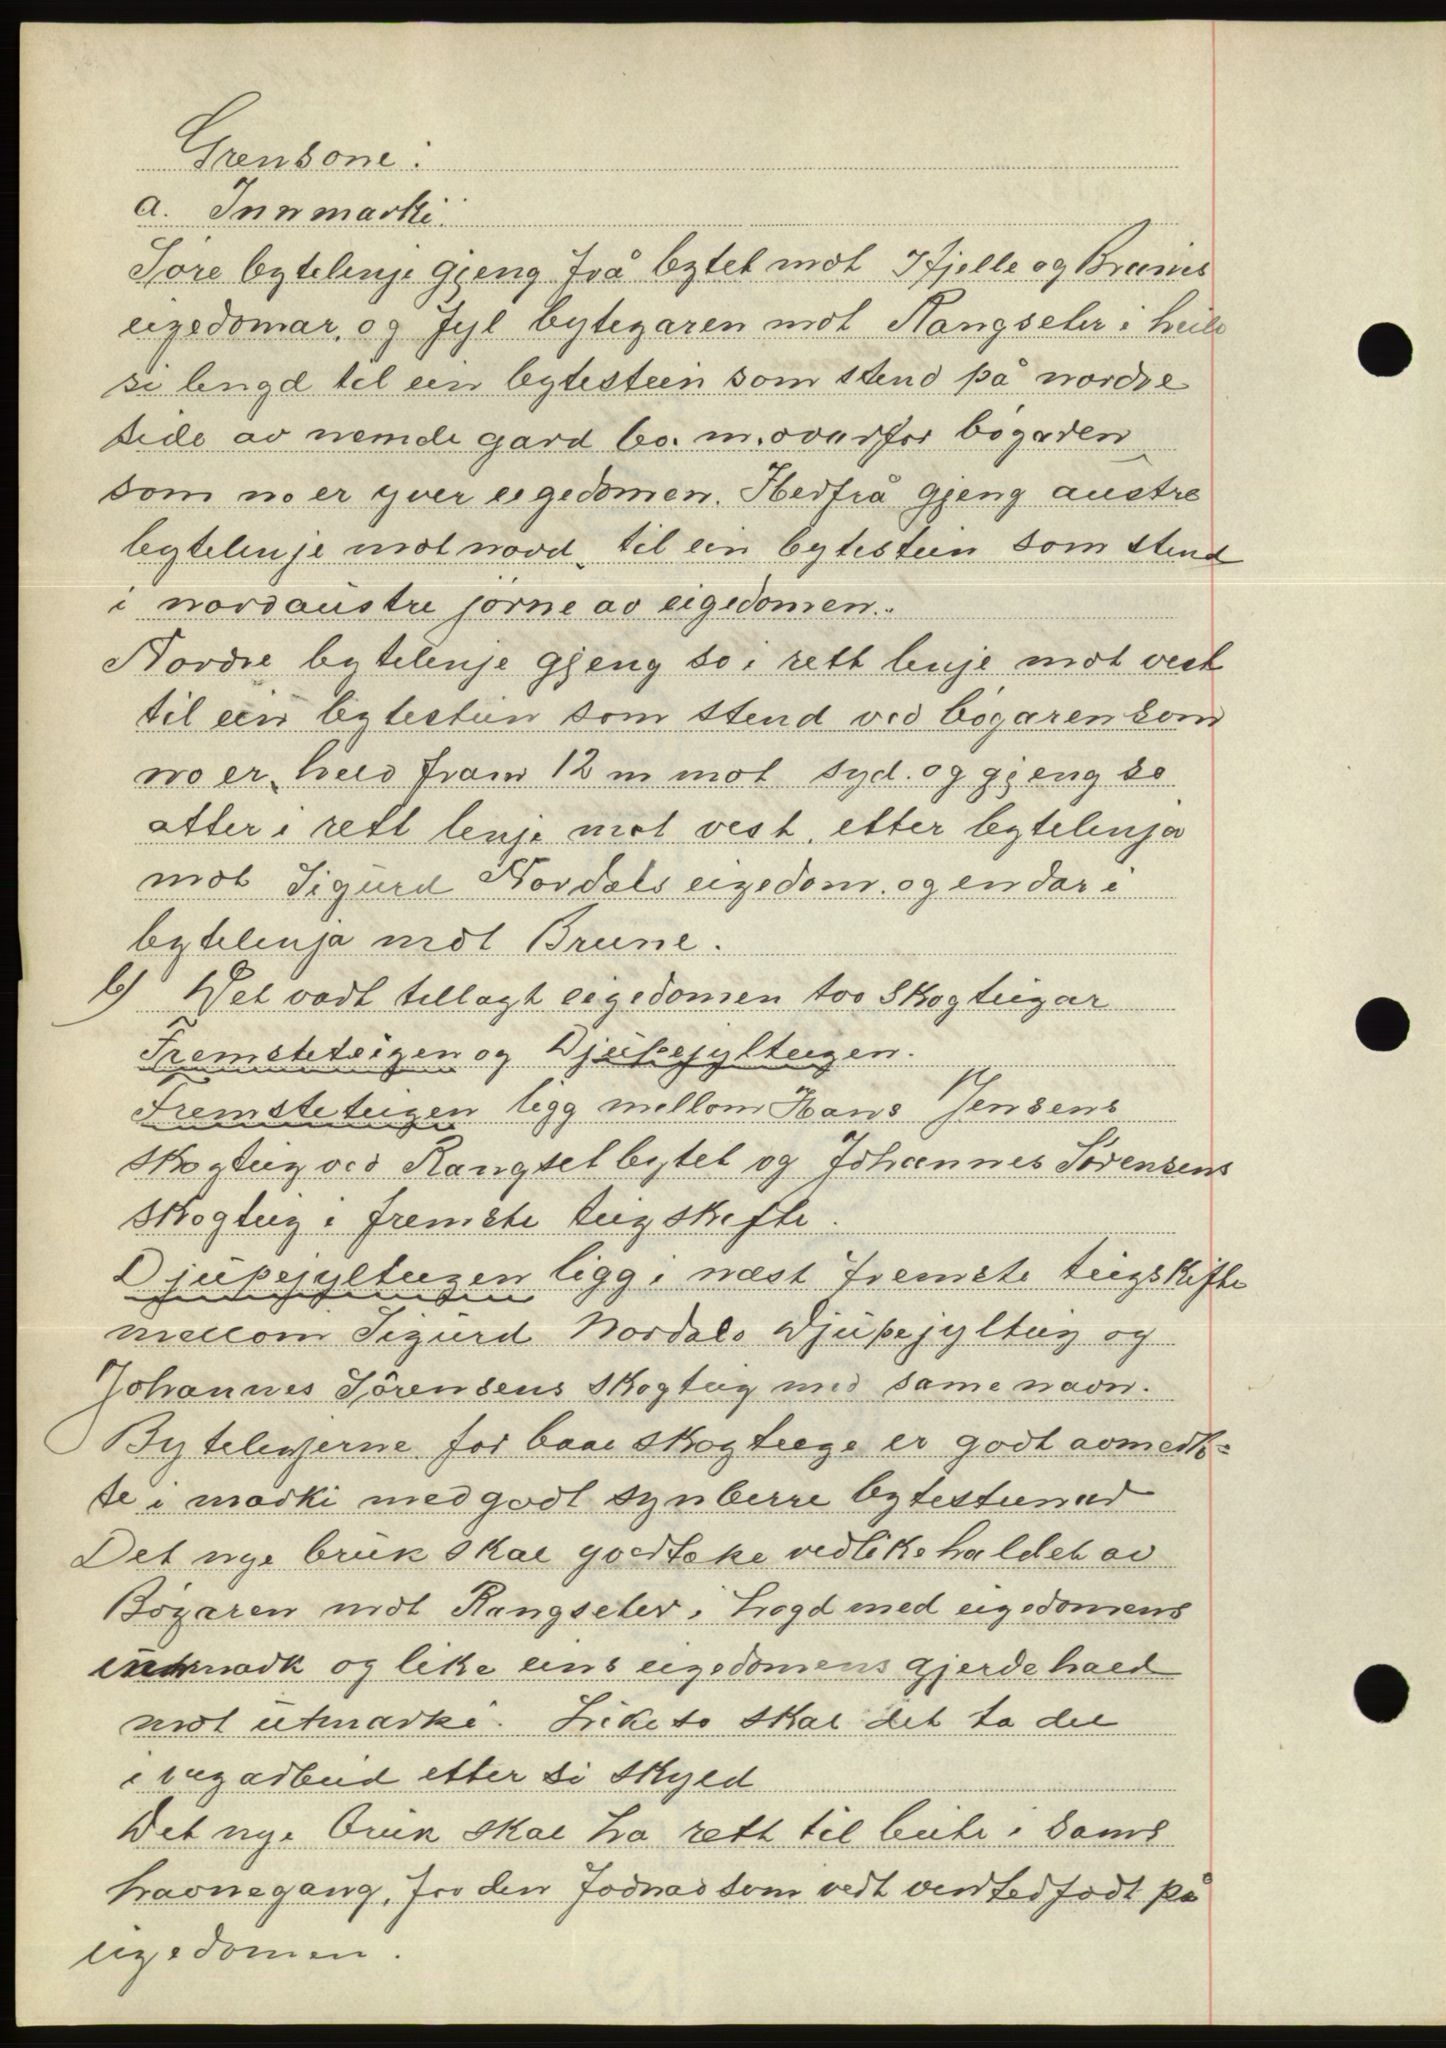 Grensone:
a. Innmarki:
Söre bytelinje gjeng frå bytet mot Ifjelle og Brunes
eigedomar, og fyl bytegaren mot Rangseter i heile
si lengd til ein bytestein som stend på nordre
side av nemde gard 60. m. ovanfor bögaren
som no er yver eigedomen. Herfrå gjeng austre
bytelinje mot nord, til ein bytestein som stend
i nordaustre jörne av eigedomen.
Nordre bytelinje gjeng so i rett linje mot vest
til ein bytestein som stend ved bögaren som
no er, held fram 12 m mot syd. og gjeng so
atter i rett linje mot vest, etter bytelinja
mot Sigurd Nordals eigedom. og endar i
bytelinja mot Brune.
b) Det vart tillagt eigedomen tvo skogteigar
Fremsteteigen og Djupejylteigen.
Fremsteteigen ligg mellom Hans Jensens
skogteig ved Rangsetbytet og Johannes Sörensens
skogteig i fremste teigskifte.
Djupejylteigen ligg i næst fremste teigskifte
mellom Sigurd Nordals Djupejylteig og
Johannes Sörensens skogteig med same navn.
Bytelinjerne for baae skogteige er godt avmerk=
te i marki med godt synberre bytesteinar
Det nye bruk skal godtake vedlikehaldet av
Bögaren mot Rangseter i høgd med eigedomens
innmark og like eins eigedomens gjerdehald
mot utmarki. Likeso skal det ta del
i vegarbeid etter si skyld
Det nye bruk skal ha rett til beite i sams
havnegang, for den fødnad som vert vinterfødt på
eigedomen.